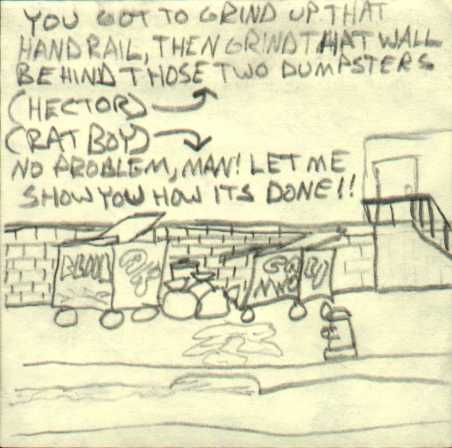 YOU GOT TO GRIND UP THAT
HANDRAIL, THEN GRIND THAT WALL
BEHIND THOSE TWO DUMPSTERS
(HECTOR)
(RAT BOY)
NO PROBLEM, MAN! LET ME
SHOW YOU HOW ITS DONE!!